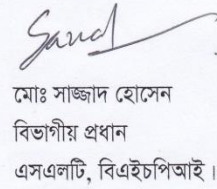 মোঃ সাজ্জাদ হোসেন
বিভাগীয় প্রধান
এসএলটি, বিএইচপিআই।